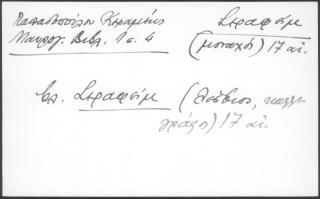 Παπαδοπούλου Κεραμέως
Μαυρογ. Βιβλ. 1 σ. 4
Σεραφείμ
(μοναχός) 17 αἰ.
βλ. Σεραφείμ (Λέσβιος, καλλι-
γράφος) 17 αἰ.